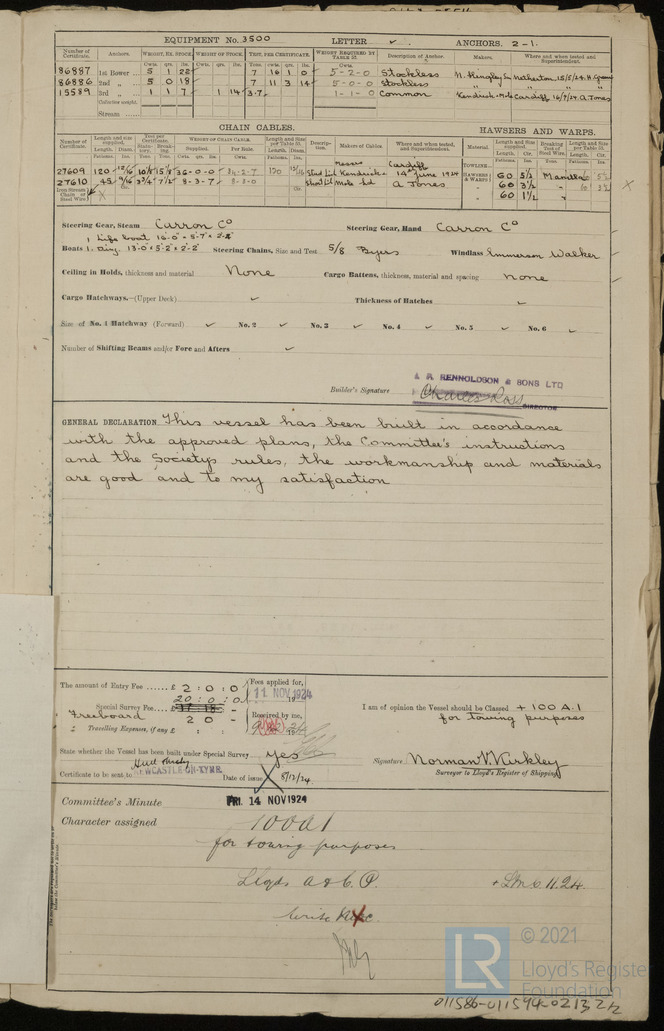 EQUIPMENT No. 3500 LETTER ✓ ANCHORS. 2-1.
Number of Certificate. Anchors. WEIGHT, EX. STOCK. WEIGHT OF STOCK. TEST, PER CERTIFICATE. WEIGHT REQUIRED BY TABLE 53. Description of Anchor. Makers. Where and when tested and Superintendent.
Cwts. qrs. lbs. Cwts. qrs. lbs. Tons. Cwts. qrs. lbs. Cwts.
86887 1st Bower 5 1 22 7 16 1 0 5-2-0 Stockless N. Hingley & Netherton 15/5/24
86886 2nd „ 5 0 18 7 11 3 14 5-0-0 Stockless „ „ „
15589 3rd „ 1 1 7 1 14 3-7 1-1-0 Common Kendrick Cardiff 16/7/24 A Jones
Collective weight.
Stream
CHAIN CABLES. HAWSERS AND WARPS.
Number of Certificate. Length and size supplied. Test per Certificate. WEIGHT OF CHAIN CABLE. Length and Size per Table 53. Description. Makers of Cables Where and when tested, and Superintendent. Material Length and size supplied. Breaking Test of Steel Wire. Length and size per Table 53.
Supplied. Per Rule.
27609 120 36-0-0 34-2-7 120 Stud Link Messrs Kendrick Cardiff 14th June 1924 TOWLINE HAWSERS & WARPS 60 5½ Manilla
27610 45 9/16 3¾ 7½ 8-3-7 8-3-0 Short Link Mole Ltd A Jones „ 60 3½ „
Iron Stream Chain or Steel Wire „ 60 1½ „
Steering Gear, Steam Carron Co Steering Gear, Hand Carron Co
1 Life boat 16·0" × 5·7" × 2·2"
Boats 1 Ding. 13·0 × 5·2 × 2·2 Steering Chains, Size and Test 5/8 Byers Windlass Emmerson Walker
Ceiling in Holds, thickness and material None Cargo Battens, thickness, material and spacing none
Cargo Hatchways.—(Upper Deck) ✓ Thickness of Hatches ✓
Size of No. 1 Hatchway (Forward) ✓ No. 2 ✓ No. 3 ✓ No. 4 ✓ No. 5 ✓ No. 6 ✓
Number of Shifting Beams and/or Fore and Afters ✓
RENNOLDSON & SONS LTD
Builder's Signature Charles Ross DIRECTOR
GENERAL DECLARATION This vessel has been built in accordance
with the approved plans, the Committee's instructions
and the Society's rules, the workmanship and materials
are good and to my satisfaction
The amount of Entry Fee £ 2 : 0 : 0 Fees applied for,
20 : 0 : 0 11 NOV 1924
Special Survey Fee
Freeboard 2 0 - Received by me,
Travelling Expenses, if any £ : :
I am of opinion the Vessel should be Classed + 100 A.1
for towing purposes
State whether the Vessel has been built under Special Survey yes
Signature Norman V. Kirkley
Surveyor to Lloyd's Register of Shipping
Certificate to be sent to NEWCASTLE-ON-TYNE. Date of issue 8/12/24.
Committee's Minute FRI. 14 NOV 1924
Character assigned 100A1
for towing purposes
Lloyds A & C.P. + LMC 11.24.
Write
LR © 2021
Lloyd's Register
Foundation
011586-011594-0213 2/2